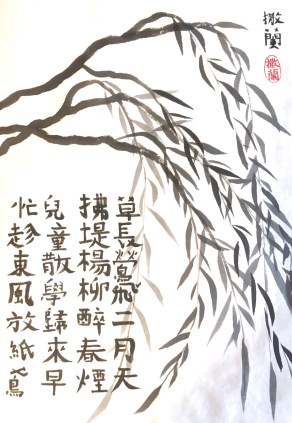 撇蘭
草長鶯飛二月天
拂堤楊柳醉春煙
兒童散學歸來早
忙趁東風放紙鳶